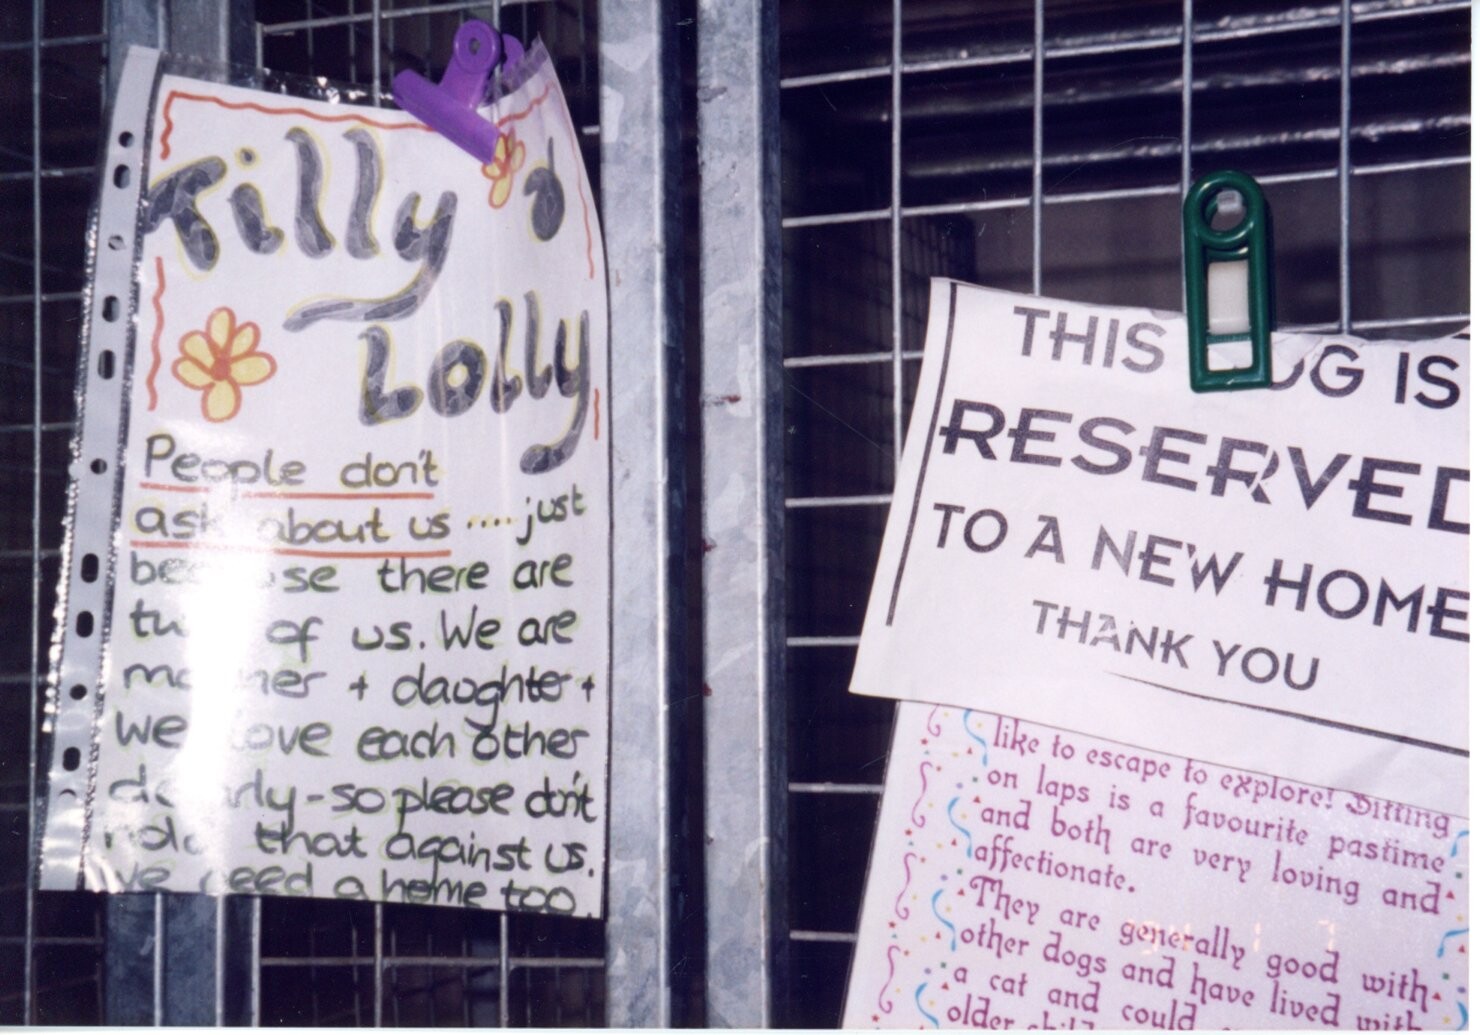 Tilly &
Lolly
People don't
ask about us .... just
because there are
two of us. We are
mother + daughter +
we love each other
dearly - so please don't
hold that against us.
we need a home too.
THIS DOG IS
RESERVED
TO A NEW HOME
THANK YOU
like to escape to explore! Sitting
on laps is a favourite pastime
and both are very loving and
affectionate.
They are generally good with
other dogs and have lived with
a cat and could
older